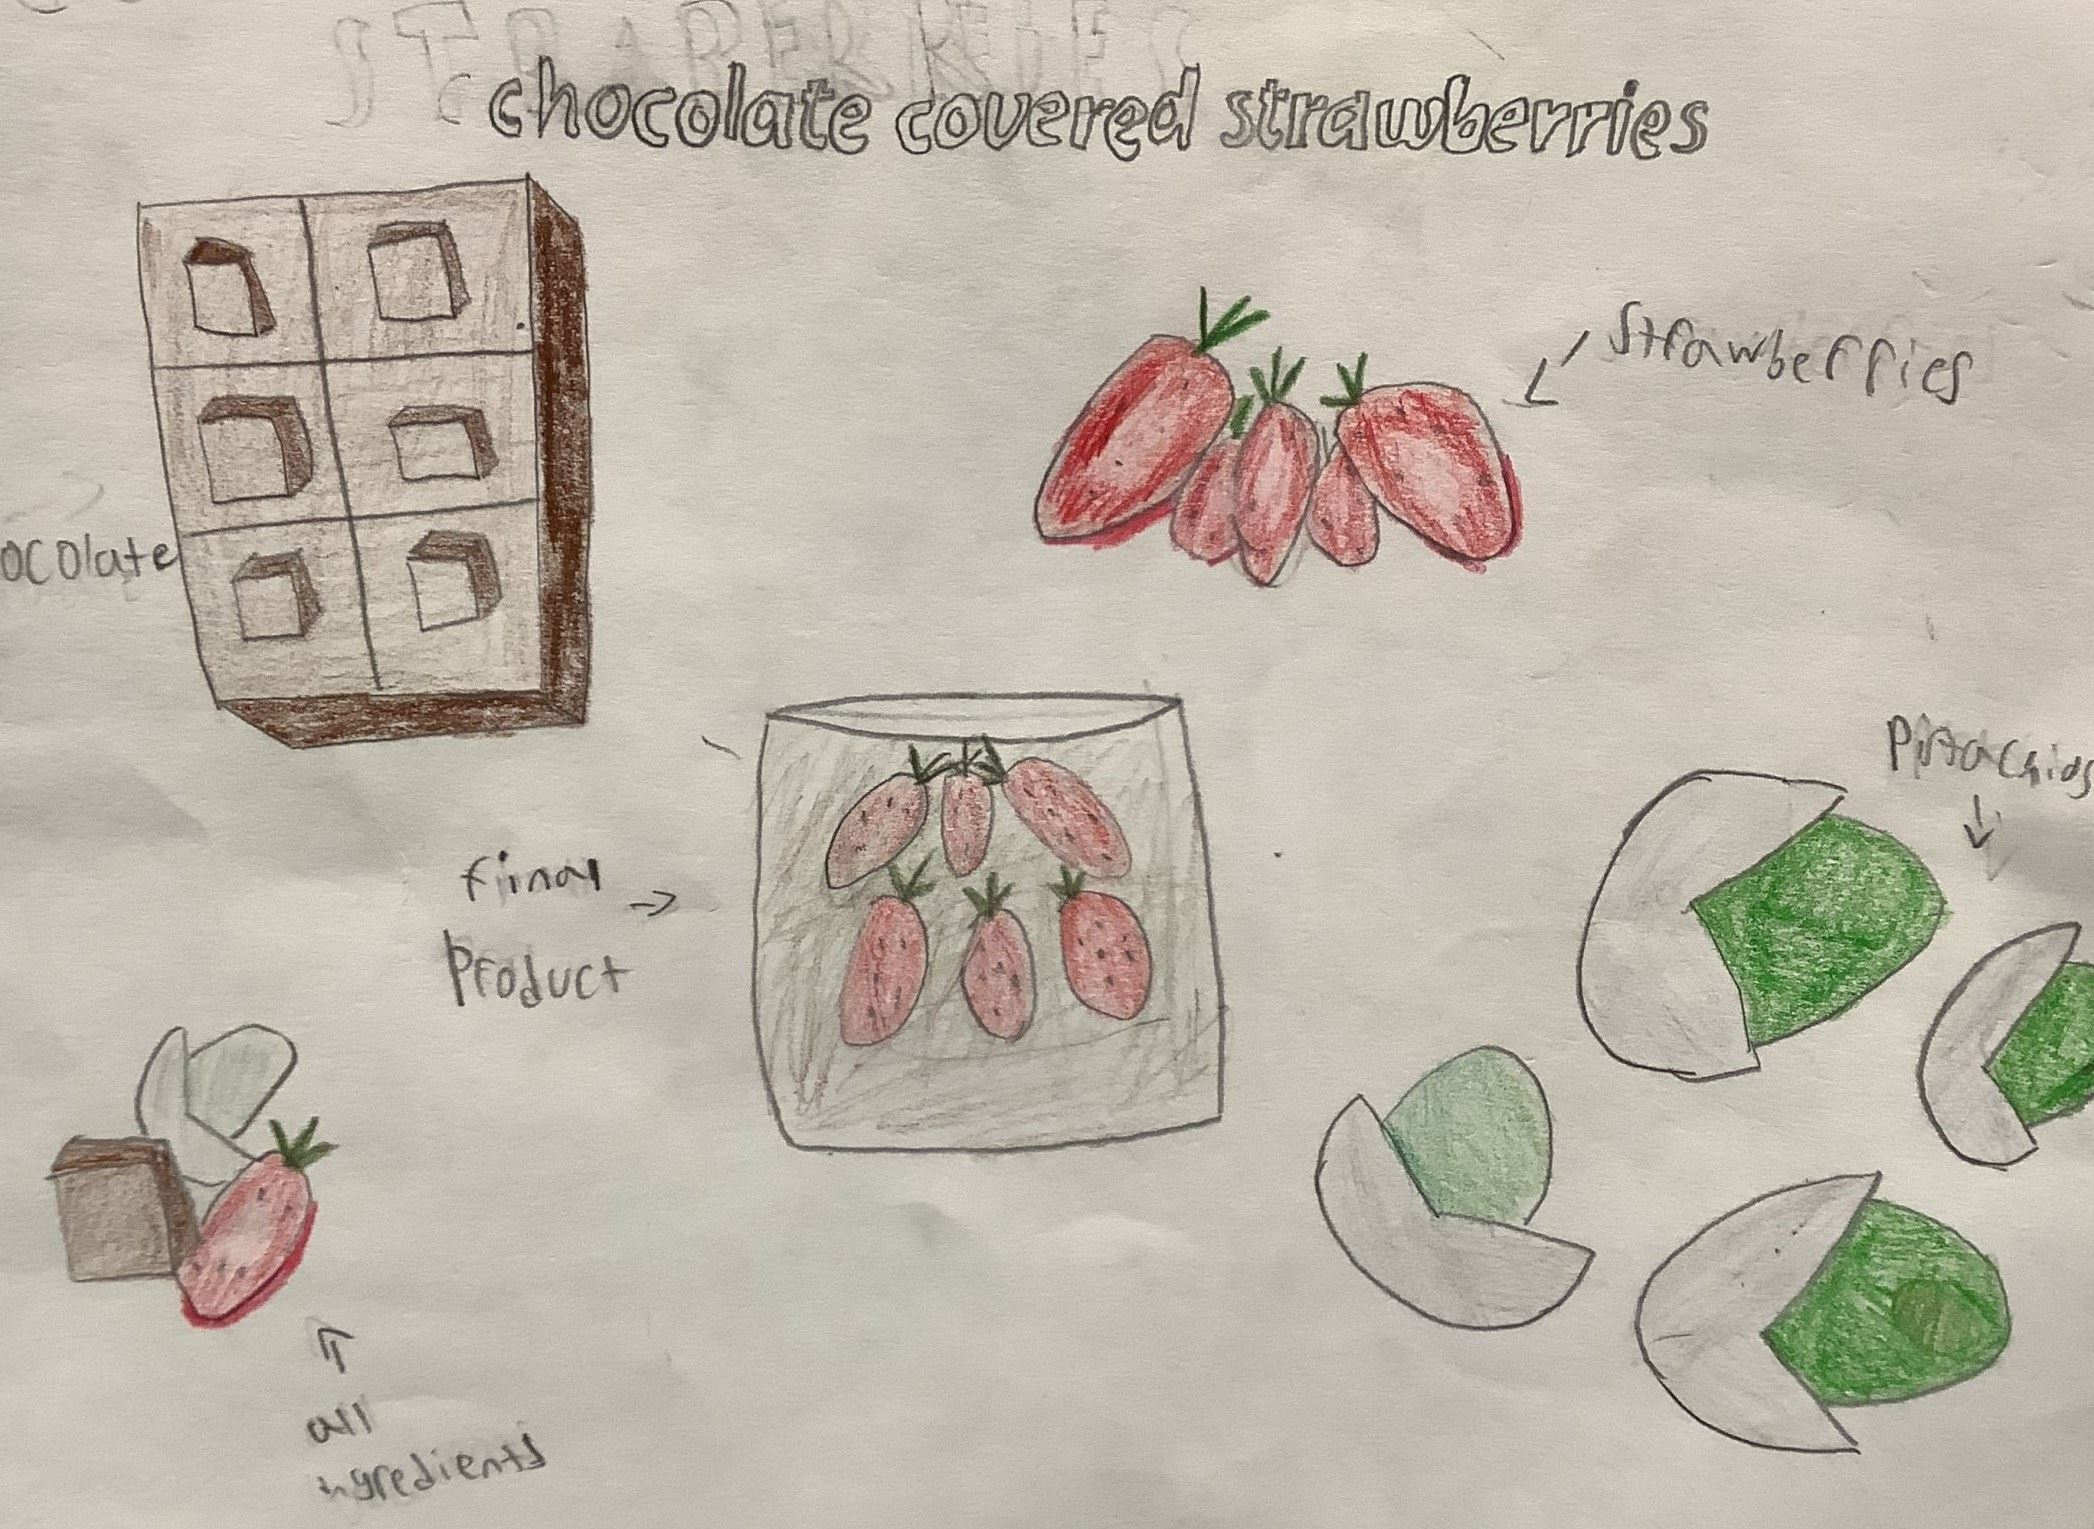 STRABERRIES
chocolate covered strawberries
strawberries
ocolate
Pistachios
final
Product
all
ingredients